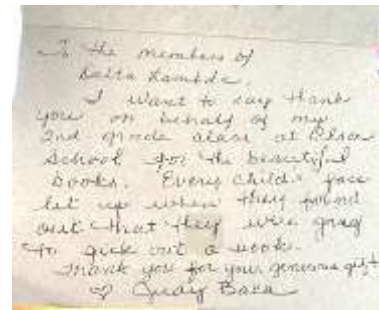 To the members of
Delta Lambda,
I want to say thank
you on behalf of my
2nd grade class at
School for the beautiful
books. Every child's face
lit up when they found
out that they were going
to pick out a book.
Thank you for your generous gift
♡